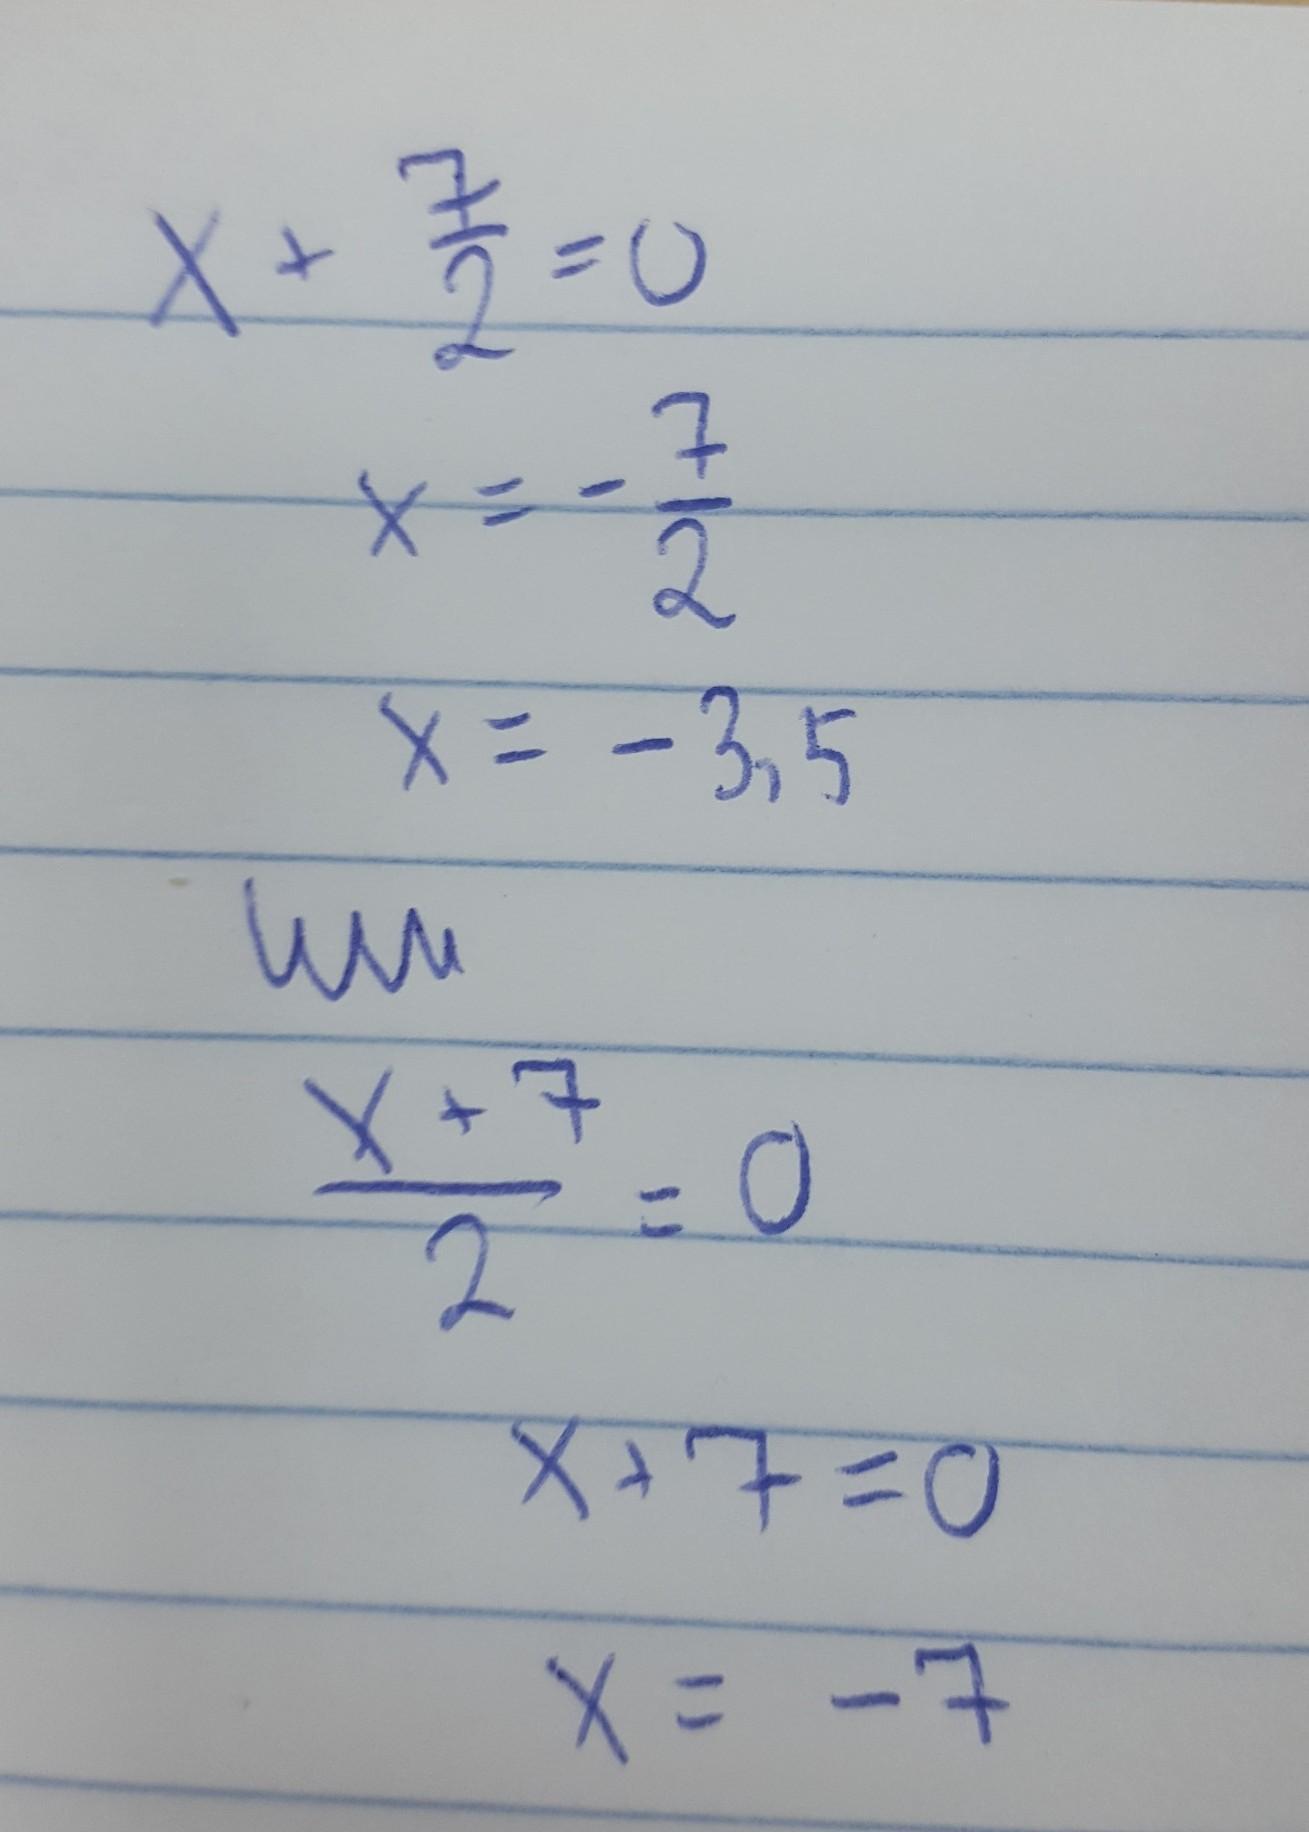 x + 7/2 = 0
x = - 7/2
x = - 3,5
или
(x + 7)/2 = 0
x + 7 = 0
x = - 7